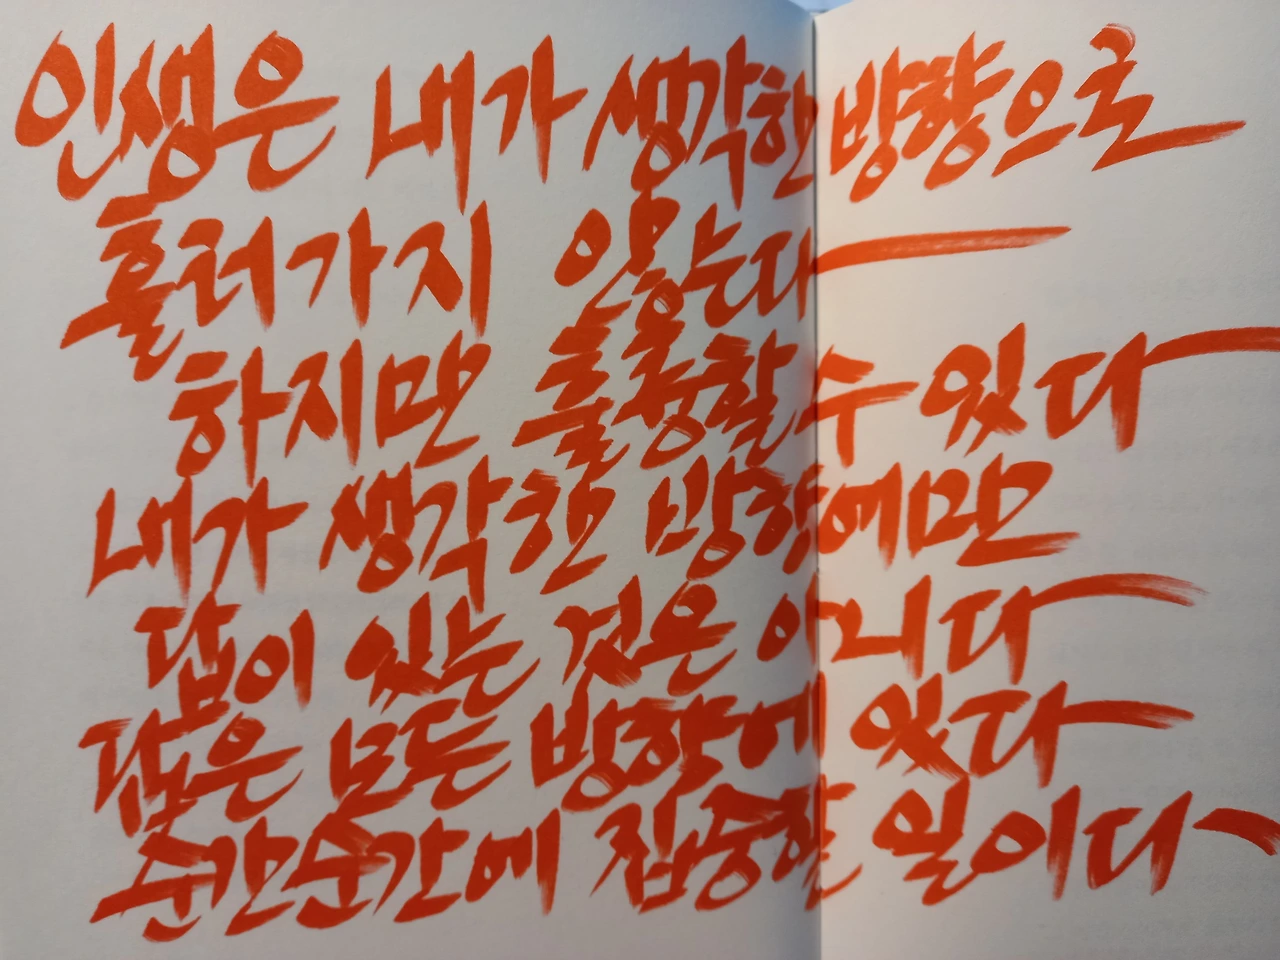 인생은 내가 생각한 방향으로
흘러가지 않는다
하지만 훌륭할 수 있다
내가 생각한 방향에만
답이 있는 것은 아니다
답은 모든 방향에 있다
순간순간에 집중할 일이다